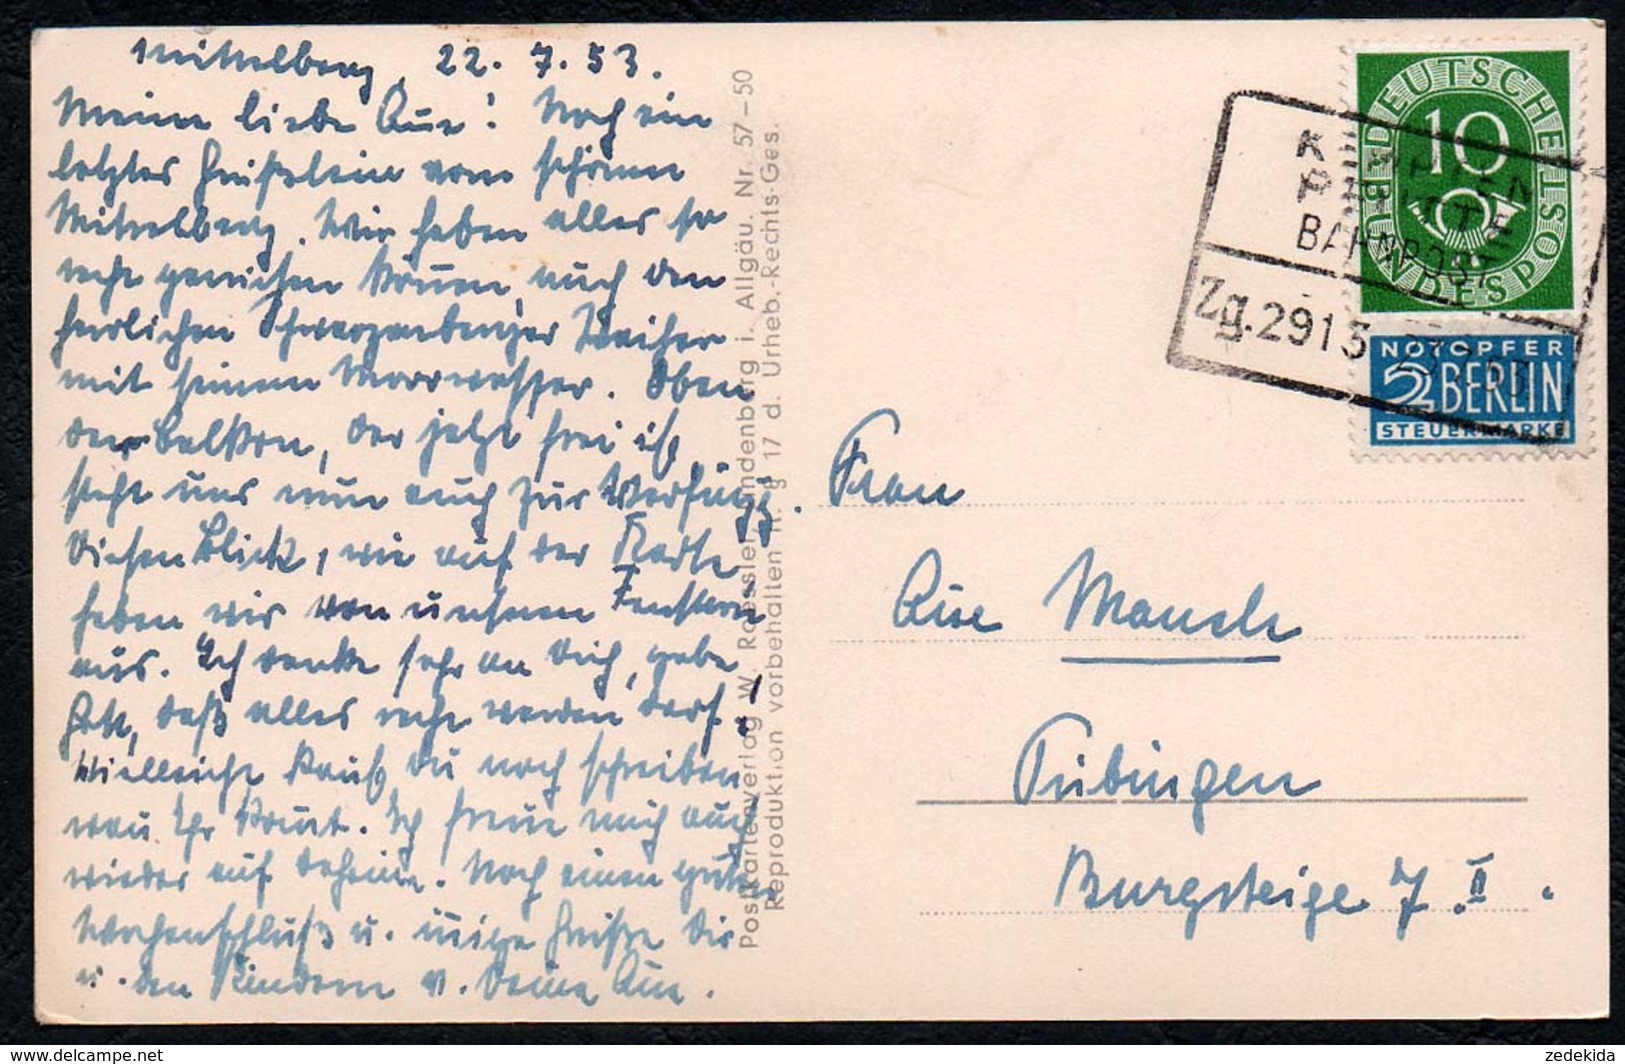 Mittelberg, 22. 7. 53.
Meine liebe Aue! Noch ein
letztes Grüßlein vom schönen
Mittelberg. Wir haben alles so
recht genießen können, auch den
herrlichen Schwarzenberger Weiher
mit seinem Moorwasser. Oben
der Balkon, der jetzt frei ist,
steht uns nun auch zur Verfügg.
Diesen Blick, wie auf der Karte
haben wir von unseren Fenstern
aus. Ich denke sehr an Dich, gebe
Gott, daß alles recht werden darf!
Vielleicht kannst Du noch schreiben
wann Ihr kommt. Ich freue mich auch
wieder auf daheim. Noch einen guten
Wochenschluß u. innige Grüße Dir
u. den Kindern v. Deine Aue.
Postkartenverlag W. Roessler, Lindenberg i. Allgäu. Nr. 57-50
Reproduktion vorbehalten n. § 17 d. Urheb.-Rechts-Ges.
DEUTSCHE BUNDESPOST
10
NOTOPFER
2 BERLIN
STEUERMARKE
KEMPTEN
BAHNPOST
Zg. 2915
Frau
Mauch
Tübingen
Burgsteige 7 II.
zedekida